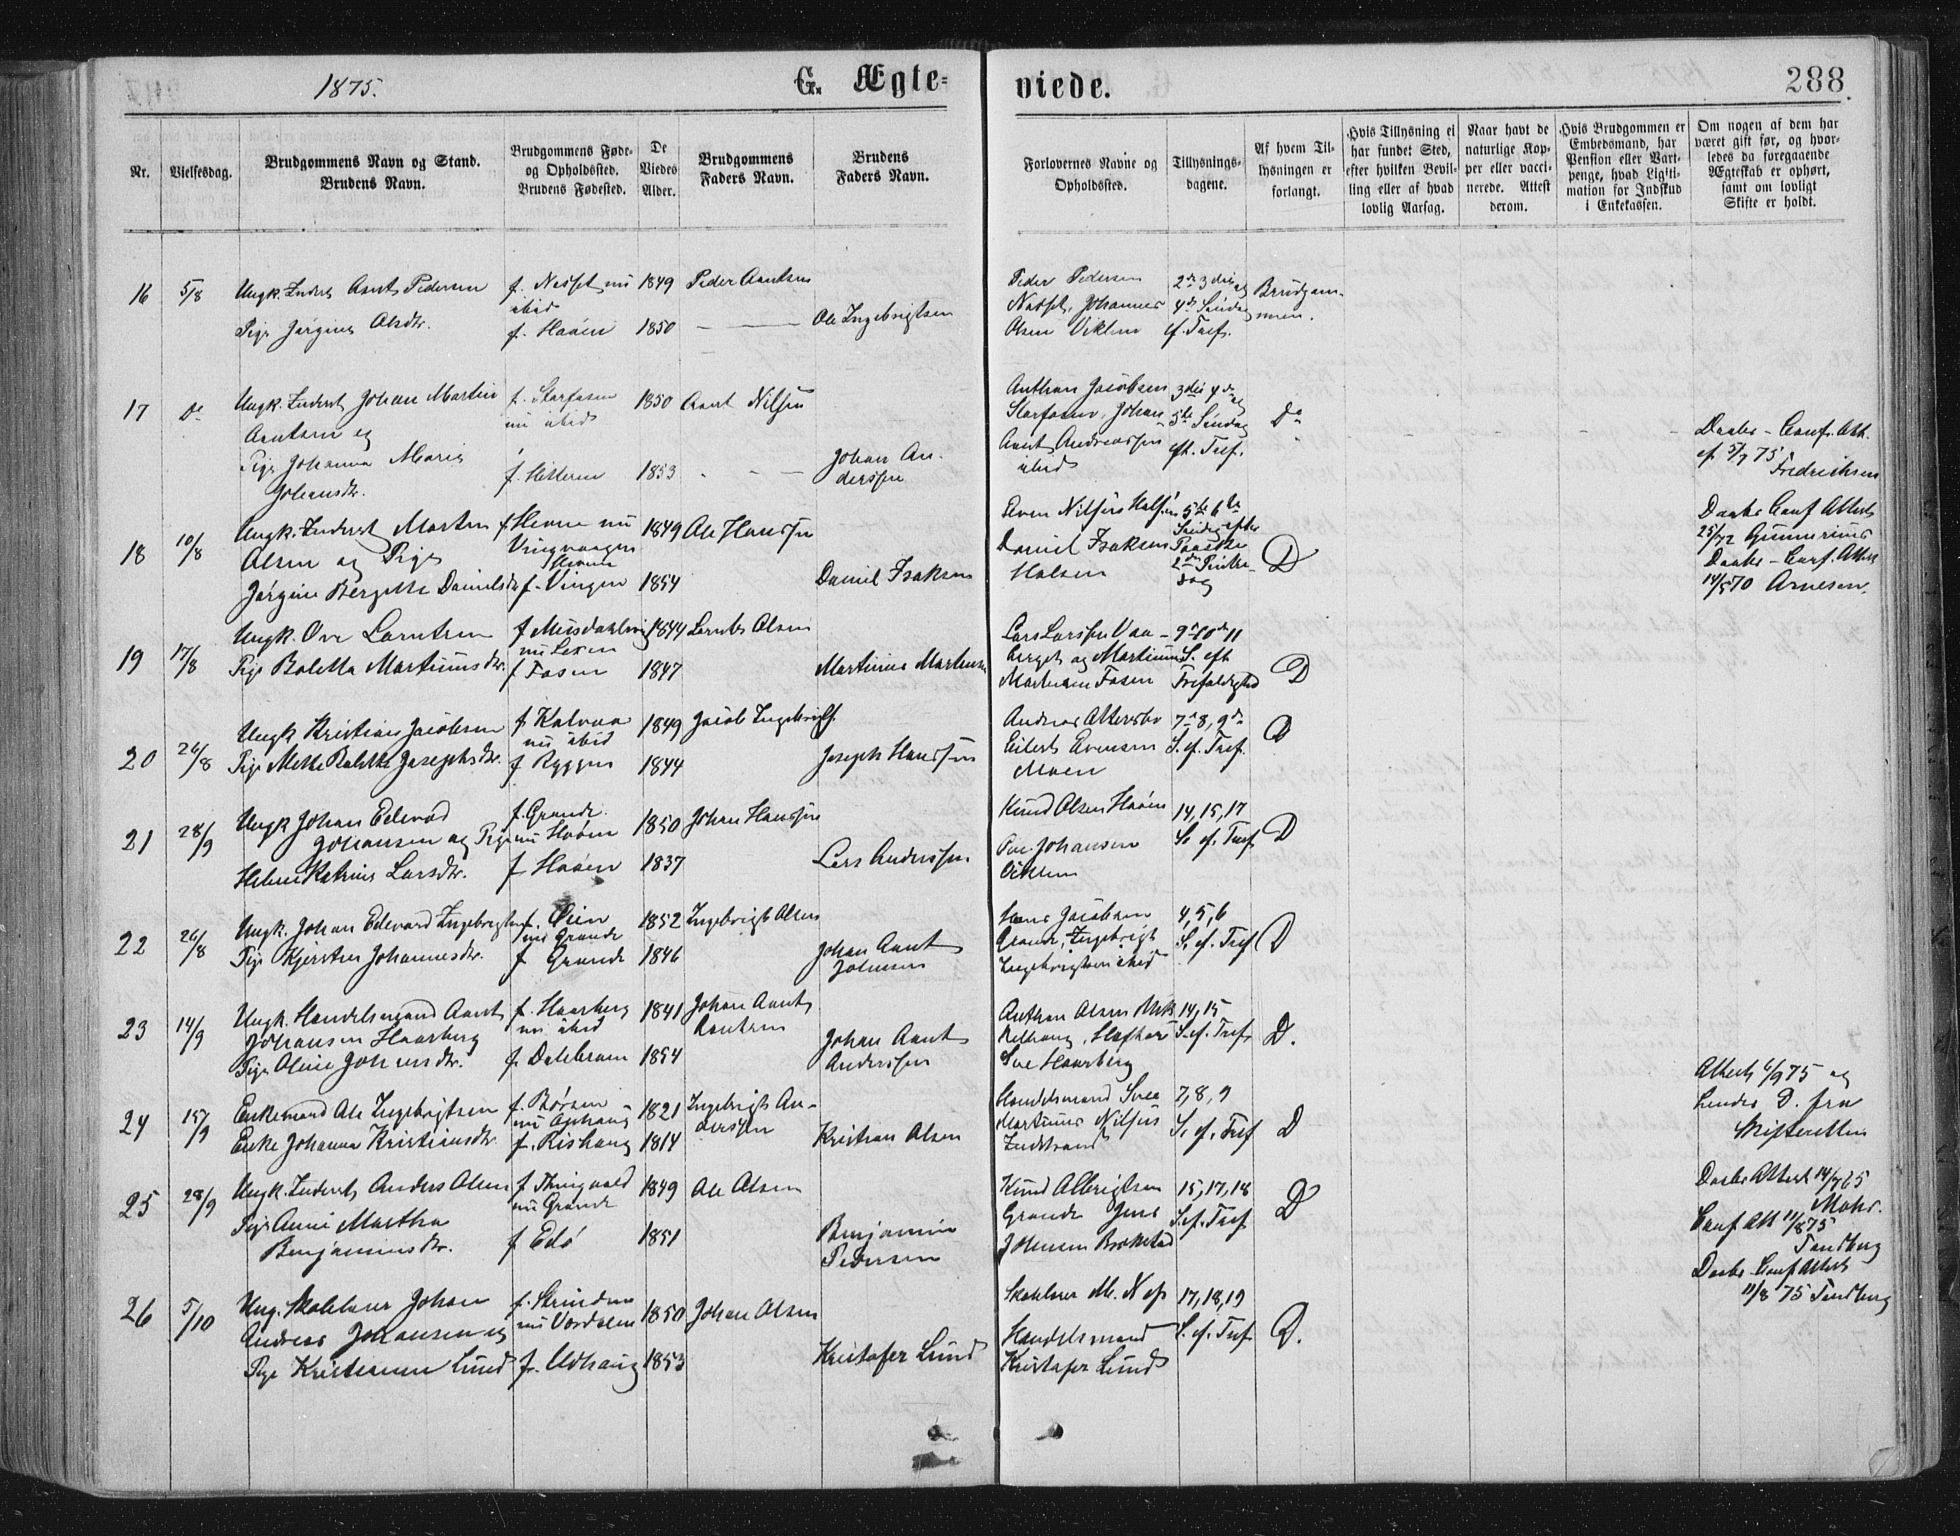 1875.
G. Ægte-
viede.
288.
Nr.
Vielsesdag.
Brudgommens Navn og Stand.
Brudens Navn.
Brudgommens Føde-
og Opholdssted.
Brudens Fødested.
De
Viedes
Alder.
Brudgommens
Faders Navn.
Brudens
Faders Navn.
Forlovernes Navne og
Opholdssted.
Tillysnings-
dagene.
Af hvem Til-
lysningen er
forlangt.
Hvis Tillysning ei
har fundet Sted,
efter hvilken Bevil-
ling eller af hvad
lovlig Aarsag.
Naar havt de
naturlige Kop-
per eller vacci-
nerede. Attest
derom.
Hvis Brudgommen er
Embedsmand, har
Pension eller Vart-
penge, hvad Ligiti-
mation for Indskud
i Enkekassen.
Om nogen af dem har
været gift før, og hvor-
ledes da foregaaende
Ægteskab er ophørt,
samt om lovligt
Skifte er holdt.
16 5/8 Ungk. Inderst Aant Pedersen
Pige Jørgine Olsdtr.
f. Nasset nu
ibid
f. Haøen
1849
1850
Peder Aantsen
Ole Ingebrigtsen
Peder Pedersen
Nasset, Johannes
Olsen Viklem
2den 3die og
4de Søndag
ef. Tref.
Brudgom-
men.
17 Do Ungk. Inderst Johan Martin
Aantsen og
Pige Johanna Marie
Johansdtr.
f. Storfosen
nu ibid
f. Hitteren
1850
1853
Aant Nilsen
Johan An-
derssen
Anthon Jacobsen
Storfosen, Johan
Aant Andreassen
ibid
3die 4de og
5te Søndag
eft. Tref.
Do
Daabs- Conf. Att.
ef 5/7 75
Fredrichsen
18 10/8 Ungk. Inderst Morten
Olsen og Pige
Jørgine Bergitte Danielsdtr
f Hevne nu
Vingvaagen
Hevne
f. Vingen
1849
1854
Ole Hanssen
Daniel Isaksen
Even Nilsen
Daniel Isaksen
Holsen
5te 6te
Søndag efter
Paaske
2den Pintse-
dag
D
Daabs Conf Attest
25/72 Gunnerius
Daabs- Conf. Attest
14/5 70 Arnesen.
19 17/8 Ungk. Ove Larntsen
Pige Boletta Martinusdtr.
nu Lexen
f Fosen
1844
1847
Larnts Olsen
Martinus Martensen
Lars Larssen Vaa-
berget og Martinus
Martensen Fosen
9de 10de 11
S. eft
Trefoldighed
D
20 26/8 Ungk Kristian Jacobsen
Pige Mette Bolette Josephsdtr.
f. Kalvaa
nu ibid
f Ryggen
1849
1844
Jacob Ingebrigts.
Joseph Hanssen
Andreas
Eilert Evensen
Moen
7de 8, 9de
S. ef. Tref.
D
21 28/9 Ungk Johan Edevard
Johansen og Pige
Helene Katrine Larsdtr.
f. Grande
nu Haøen
f Haøen
1850
1837
Johan Hanssen
Lars Anderssen
Knud Olsen Haøen
Ove Johansen
Viklem
14, 15, 17
S. ef. Tref.
D
22 26/8 Ungk. Johan Edevard Ingebrigtsen
Pige Kjersten Johannesdtr.
f. Øien
nu Grande
f Grande
1852
1846
Ingebrigt Olsen
Johan Aant
Johnsen
Hans Jacobsen
Grande, Ingebrigt
Ingebrigtsen ibid
4, 5, 6
S. ef. Tref
D
23 14/9 Ungk. Handelsmand Aant
Johansen Haarberg
Pige Oline Johansdtr.
f. Haarberg
nu ibid
f. Dalebraen
1841
1854
Johan Aant
Aantsen
Johan Aant
Anderssen
Anthon Olsen
Haarberg
14, 15
S. ef. Tref
D.
24 15/9 Enkemand Ole Ingebrigtsen
Enke Johanna Kristiansdtr.
f. Børsen
nu Ophaug
f. Rishaug
1821
1814
Ingebrigt An-
derssen
Kristian Olsen
Handelsmand
Martinus Nilsen
Indstrand
7, 8, 9
S. ef. Tref
D
Attest 6/9 75 og
hendes D. fra
Skifteretten
25 28/9 Ungk. Inderst Anders Olsen
Pige Anne Martha
Benjaminsdtr.
f Thingvold
nu Grande
f Edø
1849
1851
Ole Olsen
Benjamin
Pedersen
Knud Albrigtsen
Grande Jens
Johnsen Brækstad
15, 17, 18
S. ef. Tref.
D
Daabs Attest 14/7 65
Mohr.
Conf Att 11/8 75
Tandberg
26 5/10 Ung. Skolelærer Johan
Andreas Johansen og
Pige Kristianna Lund
f. Strinden
nu Værdalen
f. Udhaug
1850
1853
Johan Olsen
Kristofer Lund
Skolelærer M. Næss
Handelsmand
Kristofer Lund
17, 18, 19
S. ef. Tref.
D.
Daabs- Conf Attest
11/8 75 Tandberg